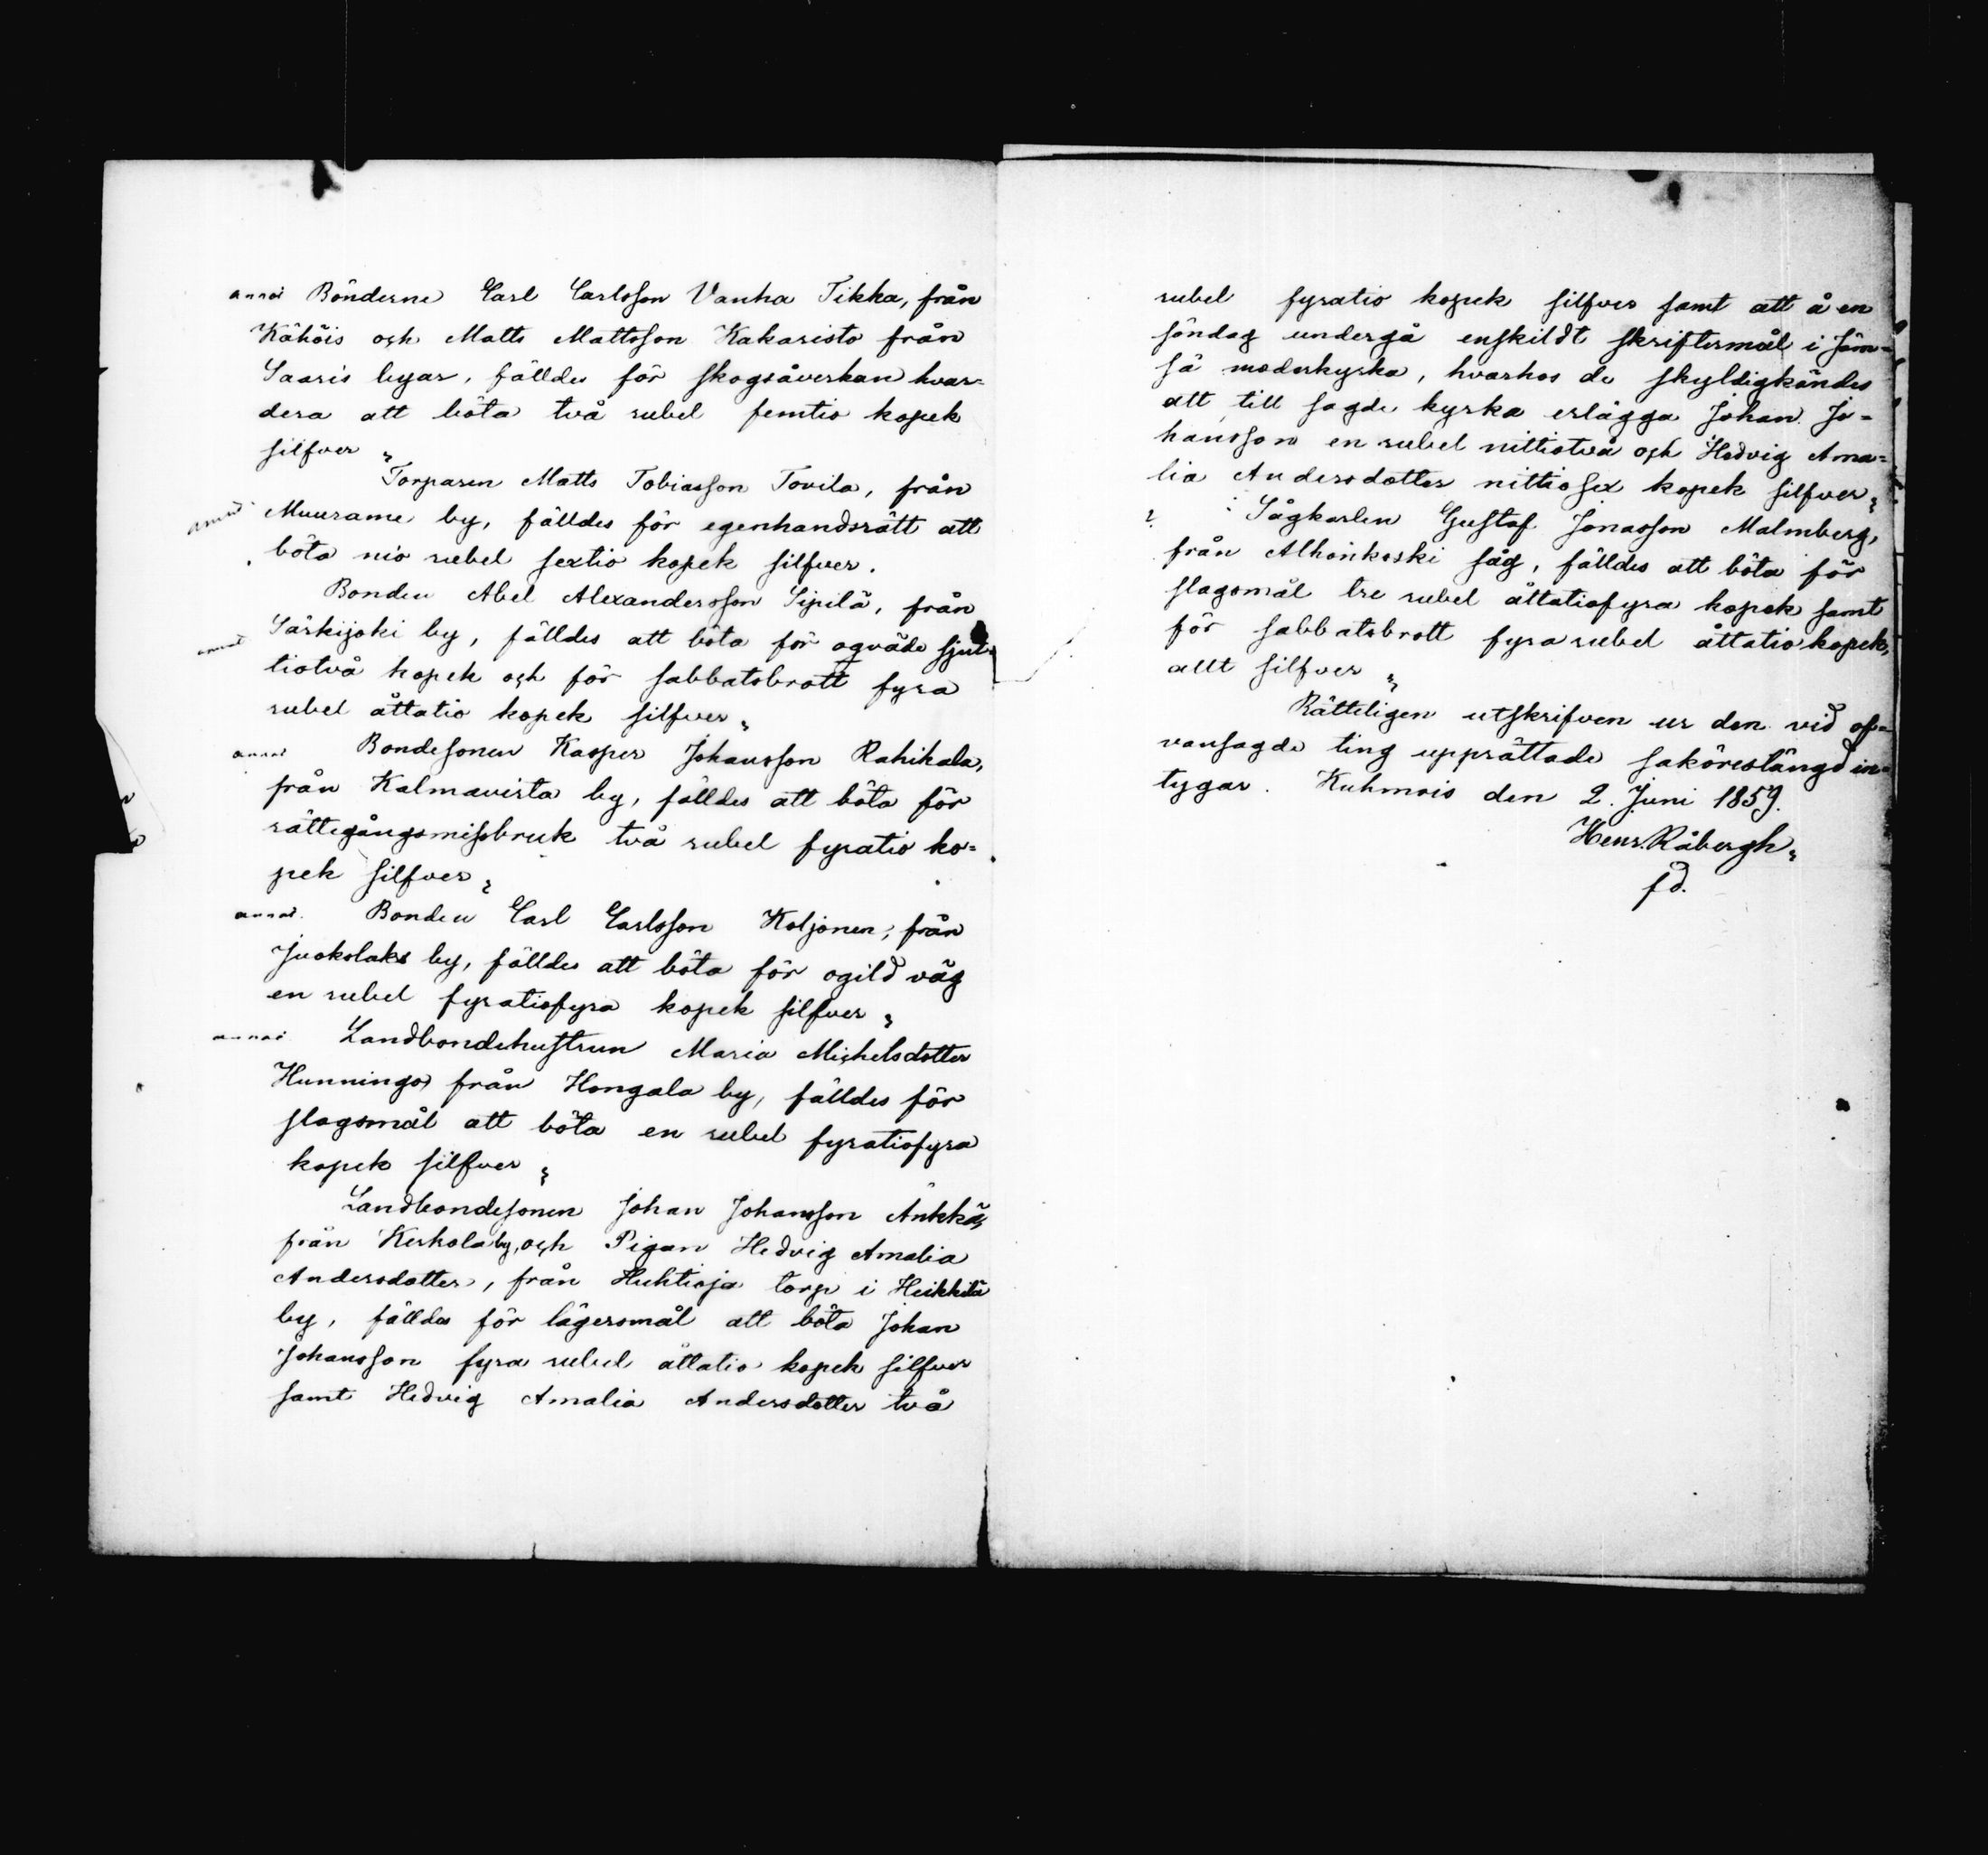 annot Bönderne Carl Carlsson Vanha Tikka, från
Kähöis och Matts Mattsson Kakaristo från
Saaris byar, fälldes för skogsåverkan hvar=
dera att böta två rubel femtio kopek
silfver
Torparen Matts Tobiasson Tovila, från
Muurame by, fälldes för egenhandsrätt att
böta nio rubel sextio kopek silfver.
Bonden Abel Alexandersson Sipilä, från
Särkijoki by, fälldes att böta för oqväde sjut=
tiotvå kopek och för sabbatsbrott fyra
rubel åttatio kopek silfver
Bondesonen Kasper Johansson Rahikala,
från Kalmavirta by, fälldes att böta för
rättegångsmissbruk två rubel fyratio ko=
pek silfver
Bonden Carl Carlsson Koljonen, från
Juokslaks by, fälldes att böta för ogild väg
en rubel fyratiofyra kopek silfver
Landbondehustrun Maria Michelsdotter
Hunningo från Hongala by, fälldes för
slagsmål att böta en rubel fyratiofyra
kopek silfver
Landbondesonen Johan Johansson Änkkä,
från Kerkola by, och Pigan Hedvig Amalia
Andersdotter, från Huhtioja torp i Heikkilä
by, fälldes för lägersmål att böta Johan
Johansson fyra rubel åttatio kopek silfver
samt Hedvig Amalia Andersdotter två
rubel fyratio kopek silfver samt att å en
söndag undergå enskildt skriftermål i Jäm=
sä moderkyrka, hvarhos de skyldigkändes
att till sagde kyrka erlägga Johan Jo=
hansson en rubel nittiotvå och Hedvig Ama=
lia Andersdotter nittiosex kopek silfver
Sågkarlen Gustaf Jonasson Malmberg,
från Alhonkoski såg, fälldes att böta för
slagsmål tre rubel åttatiofyra kopek samt
för sabbatsbrott fyra rubel åttatio kopek,
allt silfver
Rätteligen utskrifven ur den vid of=
vansagde ting upprättade saköreslängd in=
tygar. Kuhmois den 2. Juni 1859.
Henr. Råbergh